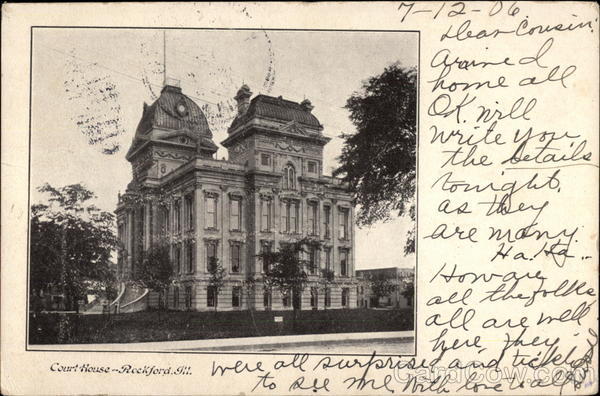 7-12-06
Dear Cousin:
Arived
home all
O.K. will
write you
the details
tonight,
as they
are many.
Ha. Ha.
How are
all the folks
all are well
here they
were all surprised and tickled
to see me with love to all
Court House--Rockford, Ill.
CardCow.com